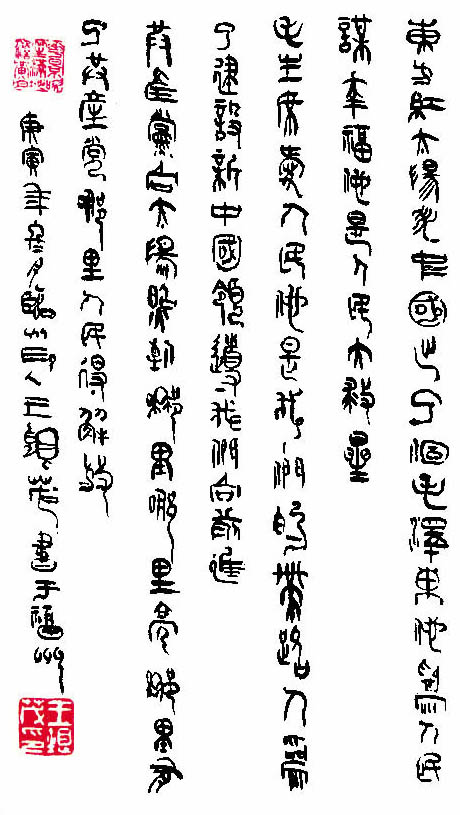 東方紅太陽昇中國出了個毛澤東他為人民
謀幸福他是人民大救星
毛主席愛人民他是我們的帶路人為
了建設新中國領導我們向前進
共產黨向太陽照到哪里哪里亮哪里有
了共產黨哪里人民得解放
庚寅年冬月臨川人王茂書于福州